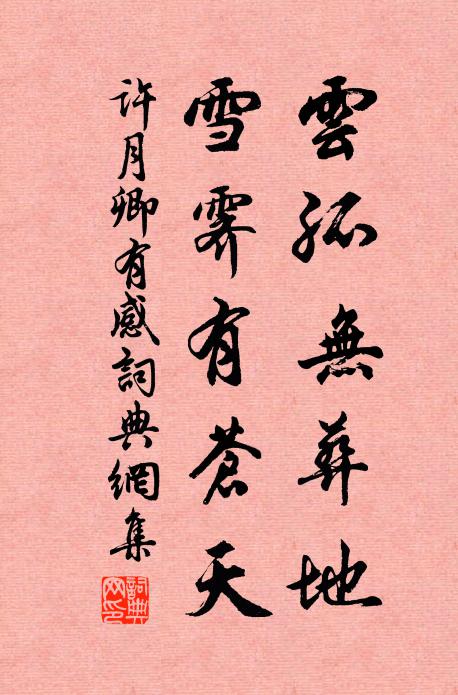 雲孤無葬地
雪霽有蒼天
許月卿有感詞典網集
詞典
网印